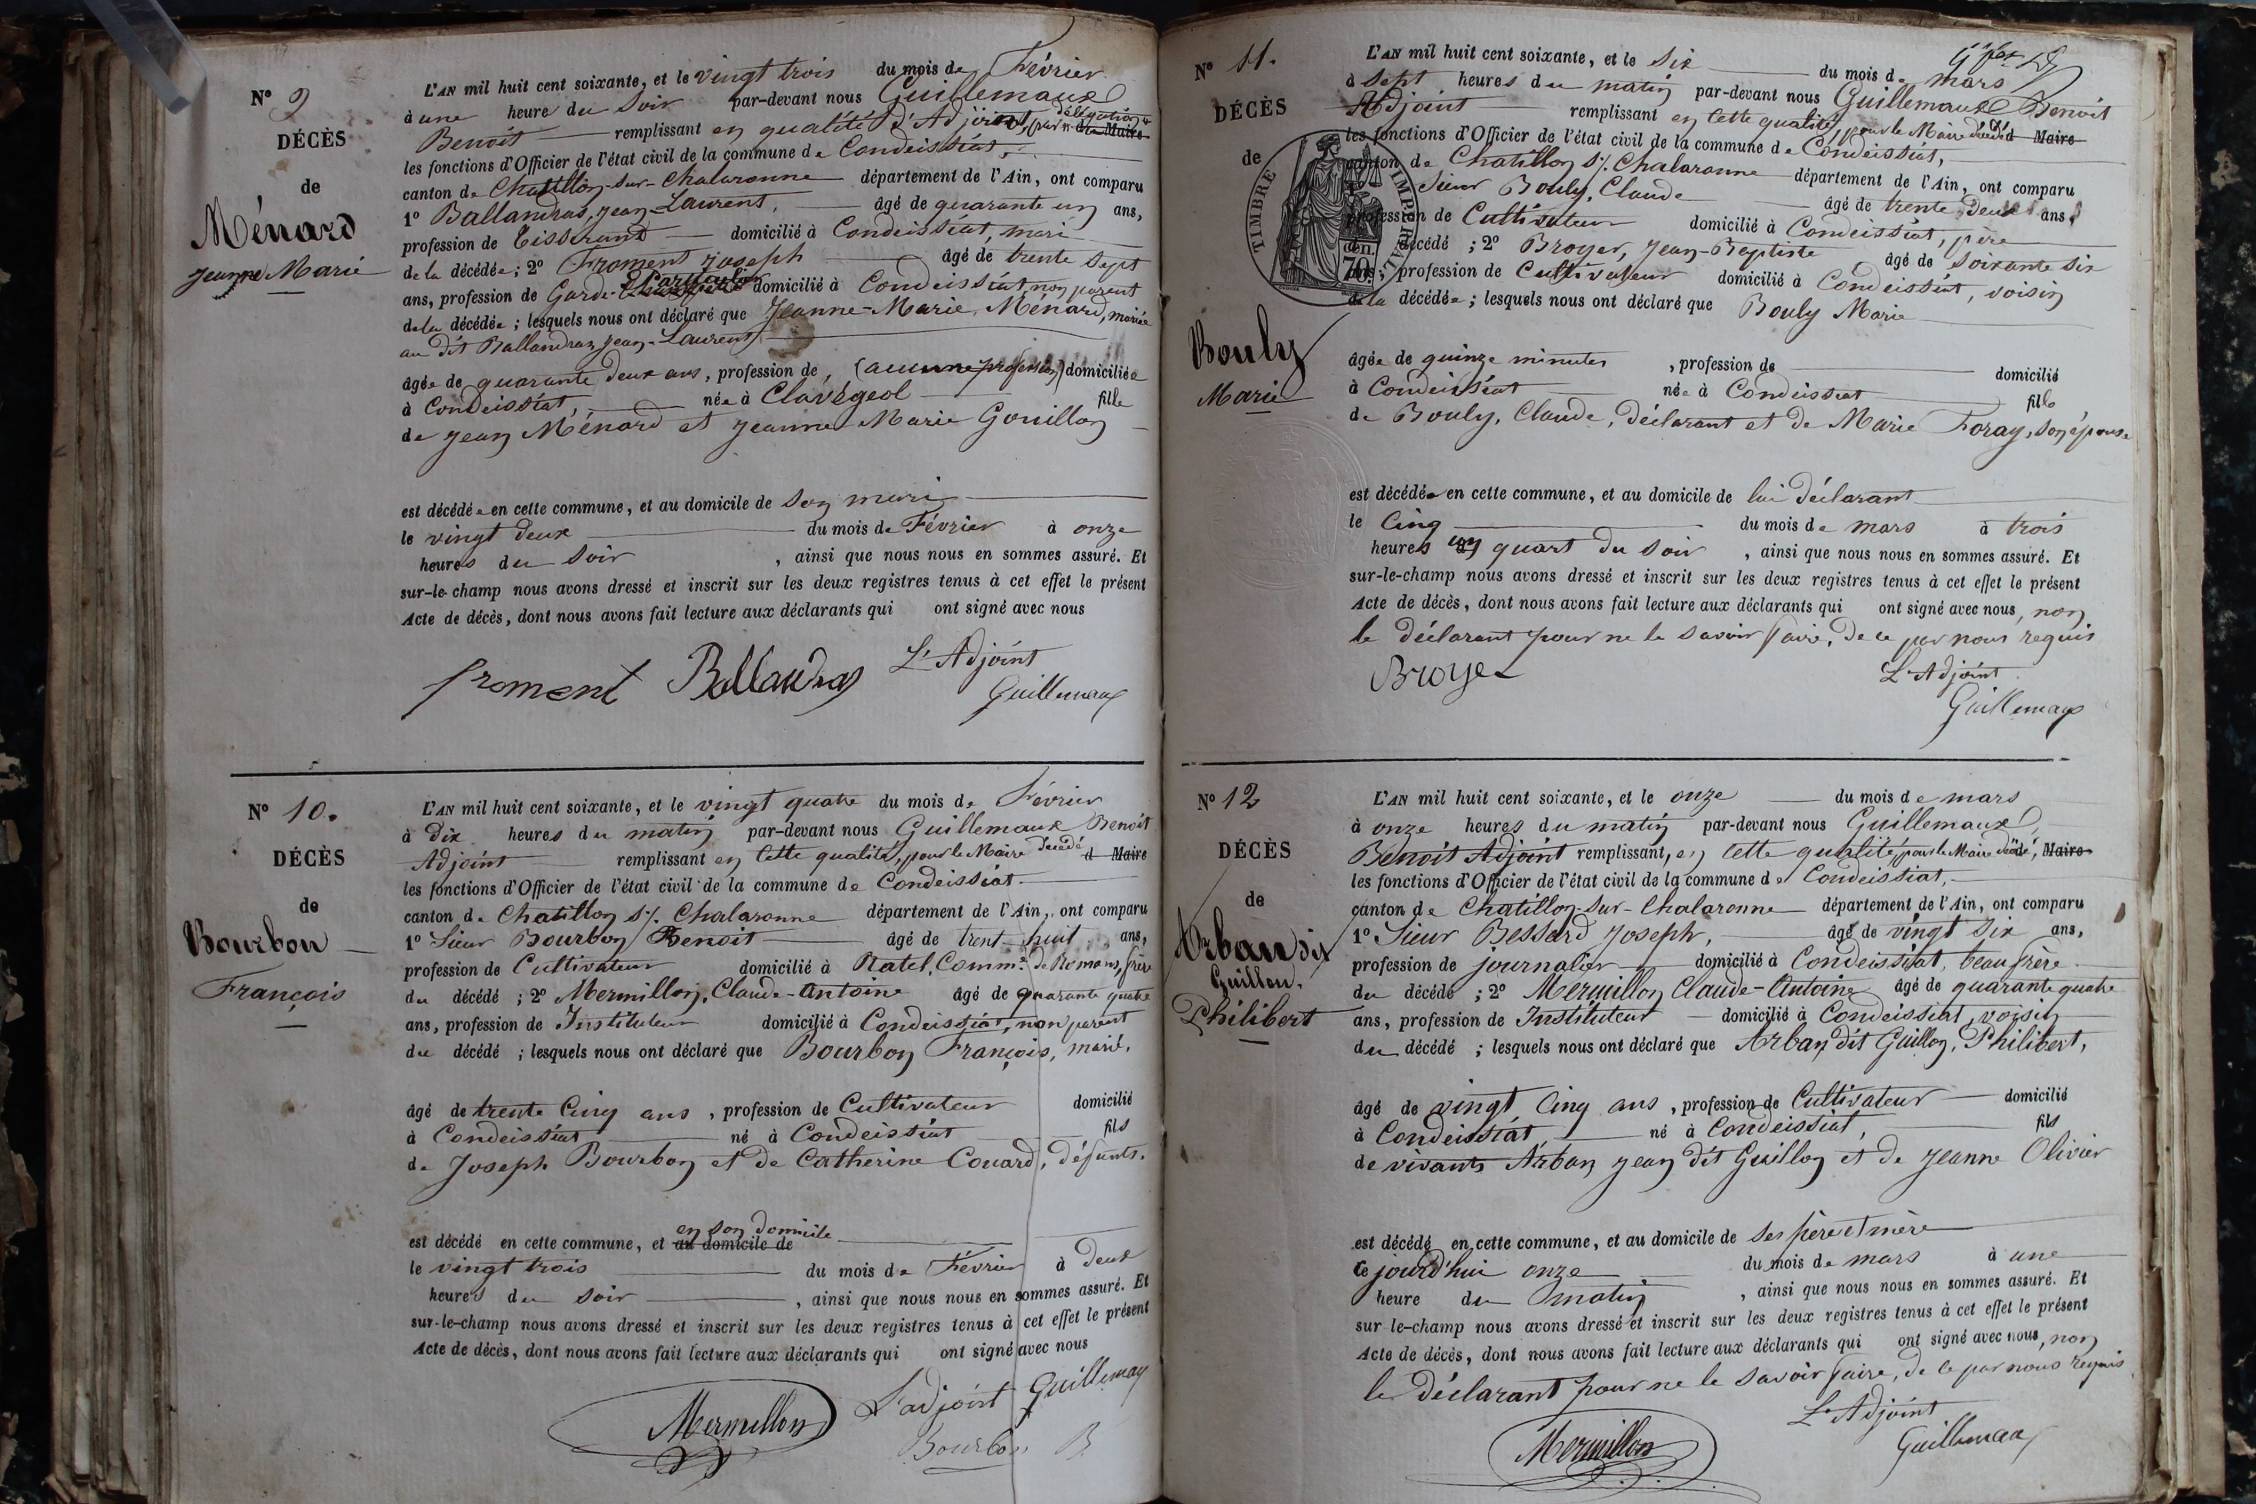 N° 9
DÉCÈS
de
Ménard
Jeanne Marie
L'AN mil huit cent soixante, et le vingt trois du mois de Février
à une heure du Soir par-devant nous Guillemaux
Benoît remplissant en qualité d'Adjoint, délégation
les fonctions d'Officier de l'état civil de la commune de Condeissiat,
canton de Chatillon-sur-Chalaronne département de l'Ain, ont comparu
1° Ballandras, Jean-Laurent, âgé de quarante un ans,
profession de Tisserand domicilié à Condeissiat, mari
de la décédée ; 2° Froment Joseph âgé de trente sept
ans, profession de Garde particulier domicilié à Condeissiat non parent
de la décédée ; lesquels nous ont déclaré que Jeanne-Marie Ménard, mariée
au dit Ballandras Jean-Laurent
âgée de quarante deux ans, profession de, (aucune profession) domiciliée
à Condeissiat, née à Clavégeol fille
de Jean Ménard et Jeanne Marie Gouillon
est décédée en cette commune, et au domicile de son mari
le vingt deux du mois de Février à onze
heures du Soir, ainsi que nous nous en sommes assuré. Et
sur-le-champ nous avons dressé et inscrit sur les deux registres tenus à cet effet le présent
Acte de décès, dont nous avons fait lecture aux déclarants qui ont signé avec nous
froment Ballandras L'Adjoint
Guillemaux
N° 10.
DÉCÈS
de
Bourbon
François
L'AN mil huit cent soixante, et le vingt quatre du mois de Février
à dix heures du matin par-devant nous Guillemaux Benoît
Adjoint remplissant en cette qualité, pour le Maire décédé d Maire
les fonctions d'Officier de l'état civil de la commune de Condeissiat.
canton de Chatillon s/. Chalaronne département de l'Ain, ont comparu
1° Sieur Bourbon Benoit âgé de trent-huit ans,
profession de Cultivateur domicilié à Ratel, Comm.e de Romans, frère
du décédé ; 2° Mermillon, Claude-Antoine âgé de quarante quatre
ans, profession de Instituteur domicilié à Condeissiat, non parent
du décédé ; lesquels nous ont déclaré que Bourbon François, marié,
âgé de trente Cinq ans, profession de Cultivateur domicilié
à Condeissiat né à Condeissiat fils
de Joseph Bourbon et de Catherine Couard, défunts.
en son domicile
est décédé en cette commune, et au domicile de
le vingt trois du mois de Février à deux
heures du soir, ainsi que nous nous en sommes assuré. Et
sur-le-champ nous avons dressé et inscrit sur les deux registres tenus à cet effet le présent
Acte de décès, dont nous avons fait lecture aux déclarants qui ont signé avec nous
Mermillon L'adjoint Guillemaux
Bourbon B
N° 11.
DÉCÈS
de
Bouly
Marie
TIMBRE IMPÉRIAL
en. 70c.
L'AN mil huit cent soixante, et le Six du mois de mars
à Sept heures du matin par-devant nous Guillemaux, Benoît
Adjoint remplissant en cette qualité, pour le Maire décédé d Maire
les fonctions d'Officier de l'état civil de la commune de Condeissiat,
canton de Chatillon s/. Chalaronne département de l'Ain, ont comparu
Sieur Bouly, Claude âgé de trente deux ans,
profession de Cultivateur domicilié à Condeissiat, père
décédé ; 2° Broyer, Jean-Baptiste âgé de soixante six
profession de Cultivateur domicilié à Condeissiat, voisin
de la décédée ; lesquels nous ont déclaré que Bouly Marie
âgée de quinze minutes, profession de domicilié
à Condeissiat née à Condeissiat fille
de Bouly, Claude, déclarant et de Marie Foray, son épouse
est décédée en cette commune, et au domicile de lui déclarant
le Cinq du mois de mars à trois
heures un quart du soir, ainsi que nous nous en sommes assuré. Et
sur-le-champ nous avons dressé et inscrit sur les deux registres tenus à cet effet le présent
Acte de décès, dont nous avons fait lecture aux déclarants qui ont signé avec nous, non
le déclarant pour ne le savoir faire, de ce par nous requis
Broyer L'Adjoint
Guillemaux
N° 12
DÉCÈS
de
Arban dit
Guillon,
Philibert
L'AN mil huit cent soixante, et le onze du mois de mars
à onze heures du matin par-devant nous Guillemaux,
Benoît Adjoint remplissant, en cette qualité, pour le Maire décédé, Maire
les fonctions d'Officier de l'état civil de la commune de Condeissiat,
canton de Chatillon-sur-Chalaronne département de l'Ain, ont comparu
1° Sieur Bessard Joseph, âgé de vingt six ans,
profession de journalier domicilié à Condeissiat, beau frère
du décédé ; 2° Mermillon Claude-Antoine âgé de quarante quatre
ans, profession de Instituteur domicilié à Condeissiat, voisin
du décédé ; lesquels nous ont déclaré que Arban dit Guillon, Philibert,
âgé de vingt Cinq ans, profession de Cultivateur domicilié
à Condeissiat, né à Condeissiat, fils
de vivants Arban Jean dit Guillon et de Jeanne Olivier
est décédé en cette commune, et au domicile de ses père et mère
ce jourd'hui onze du mois de mars à une
heure du matin, ainsi que nous nous en sommes assuré. Et
sur-le-champ nous avons dressé et inscrit sur les deux registres tenus à cet effet le présent
Acte de décès, dont nous avons fait lecture aux déclarants qui ont signé avec nous, non
le déclarant pour ne le savoir faire, de ce par nous requis
L'Adjoint
Mermillon Guillemaux